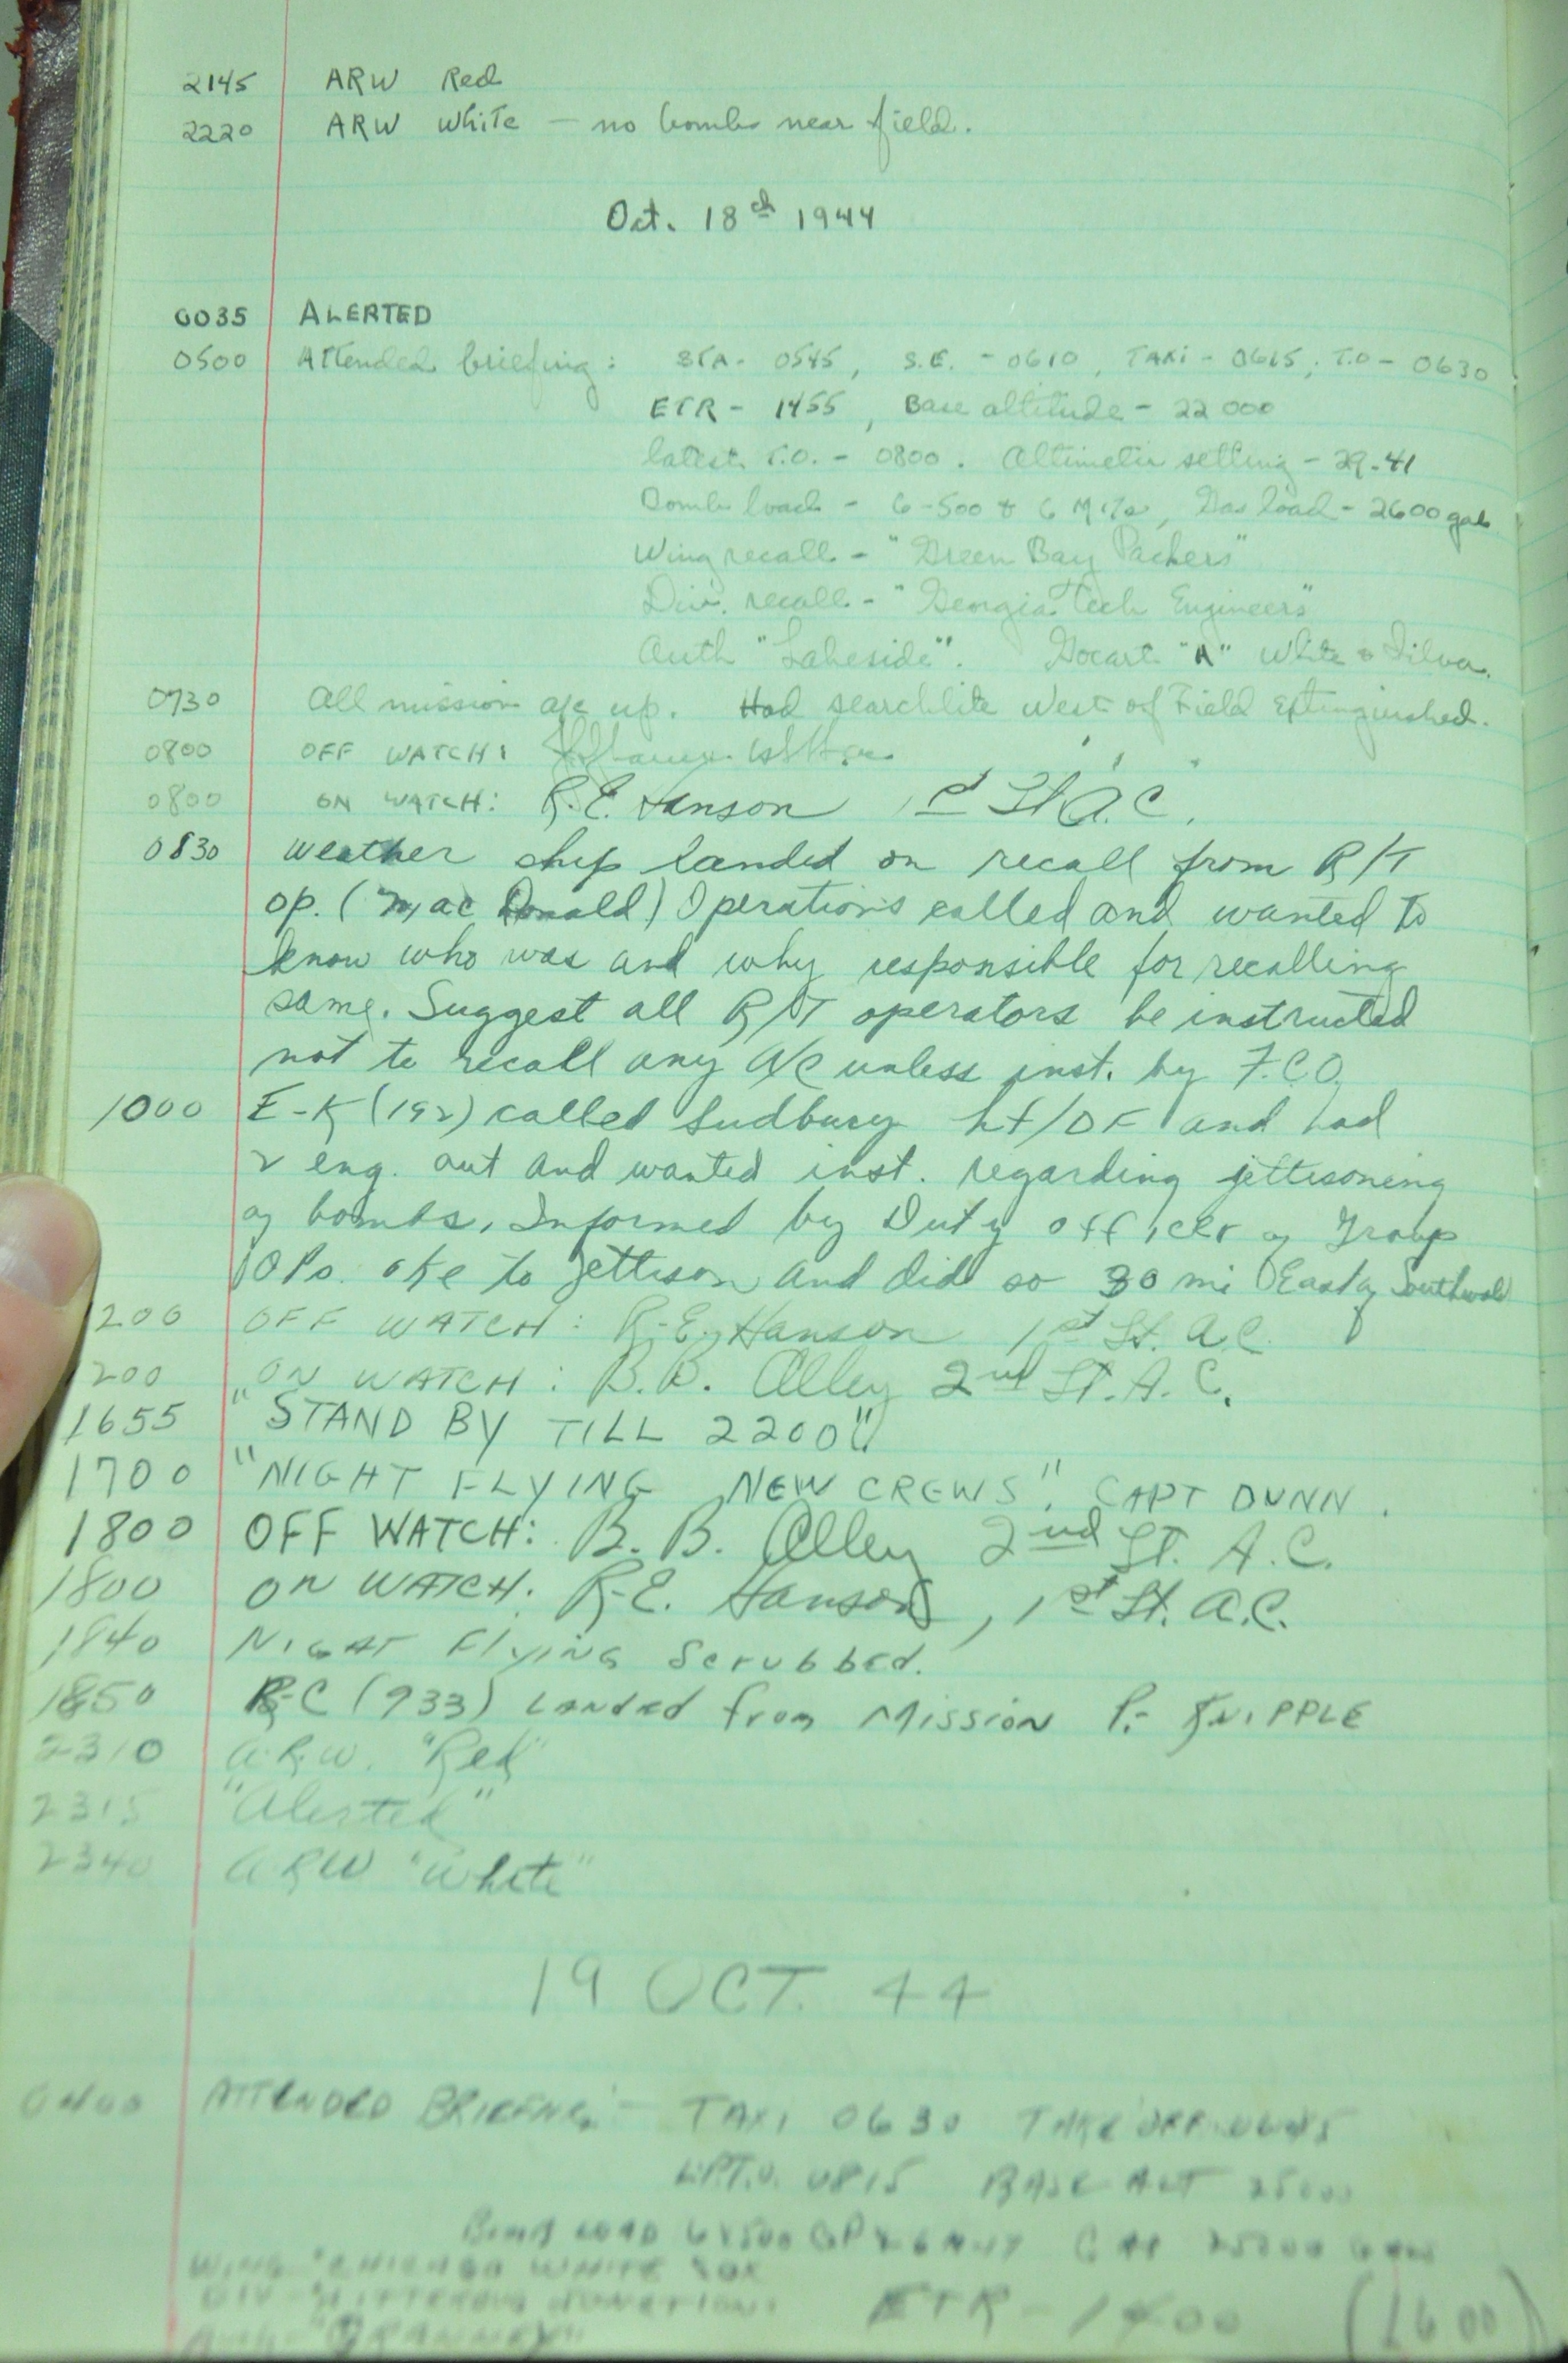 2145 ARW Red
2220 ARW White — no bombs near field.
Oct. 18th 1944
0035 ALERTED
0500 Attended briefing: STA- 0545, S.E. - 0610, TAXI - 0615, T.O - 0630
ETR - 1455, Base altitude - 22000
latest T.O. - 0800. Altimeter setting - 29.41
Bomb load - 6-500 & 6 M17s, Gas load - 2600 gals
Wing recall - "Green Bay Packers"
Div. recall - "Georgia Tech Engineers"
Auth "Lakeside". "A" White & Silver.
0730 All mission a/c up. Had searchlite West of Field Extinguished.
0800 OFF WATCH:
0800 ON WATCH: R.E. Hanson 1st Lt A.C.
0830 Weather ship landed on recall from R/T
op. (Mac Donald) Operations called and wanted to
know who was and why responsible for recalling
same. Suggest all R/T operators be instructed
not to recall any A/C unless inst. by F.C.O.
1000 E-K (192) called Sudbury hf/DF and had
2 eng. out and wanted inst. regarding jettisoning
of bombs. Informed by Duty officer of Group
OPs. oke to jettison and did so 30 mi East of Southwold
200 OFF WATCH: R.E. Hanson 1st Lt. A.C.
200 ON WATCH: B.B. Alley 2nd Lt. A.C.
1655 "STAND BY TILL 2200"
1700 "NIGHT FLYING NEW CREWS". CAPT DUNN.
1800 OFF WATCH: B.B. Alley 2nd Lt. A.C.
1800 ON WATCH: R.E. Hanson, 1st Lt. A.C.
1840 Night Flying Scrubbed.
1850 R-C (933) Landed from Mission P. KNIPPLE
2310 A.R.W. "Red"
2315 "Alerted"
2340 ARW "White"
19 OCT. 44
ATTENDED BRIEFING - TAXI 0630 TAKE OFF 0645
0815 BASE ALT 25000
BOMB LOAD
WING "CHICAGO WHITE SOX
DIV
ETR - 1400 (1600)